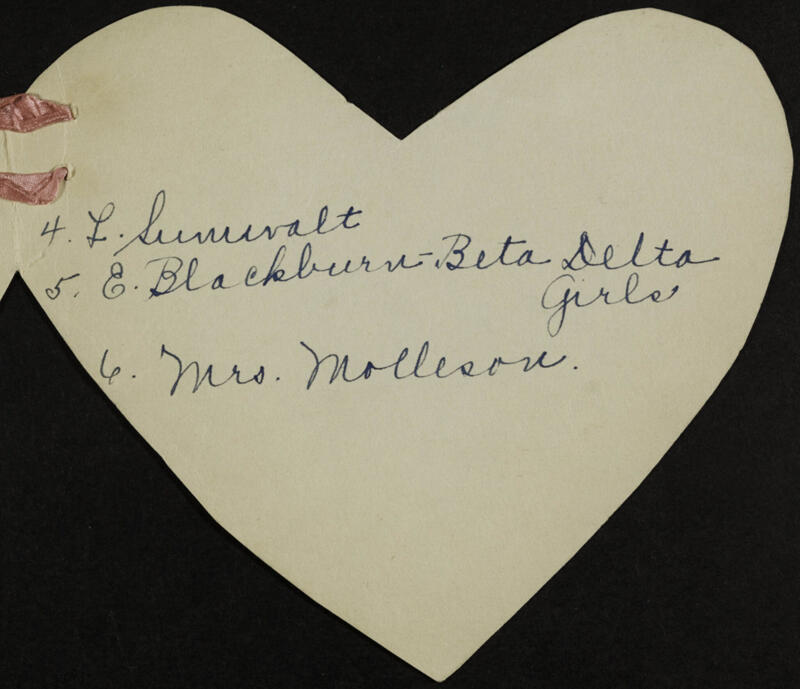 4. L. Sumwalt
5. E. Blackburn-Beta Delta
Girls
6. Mrs. Molleson.